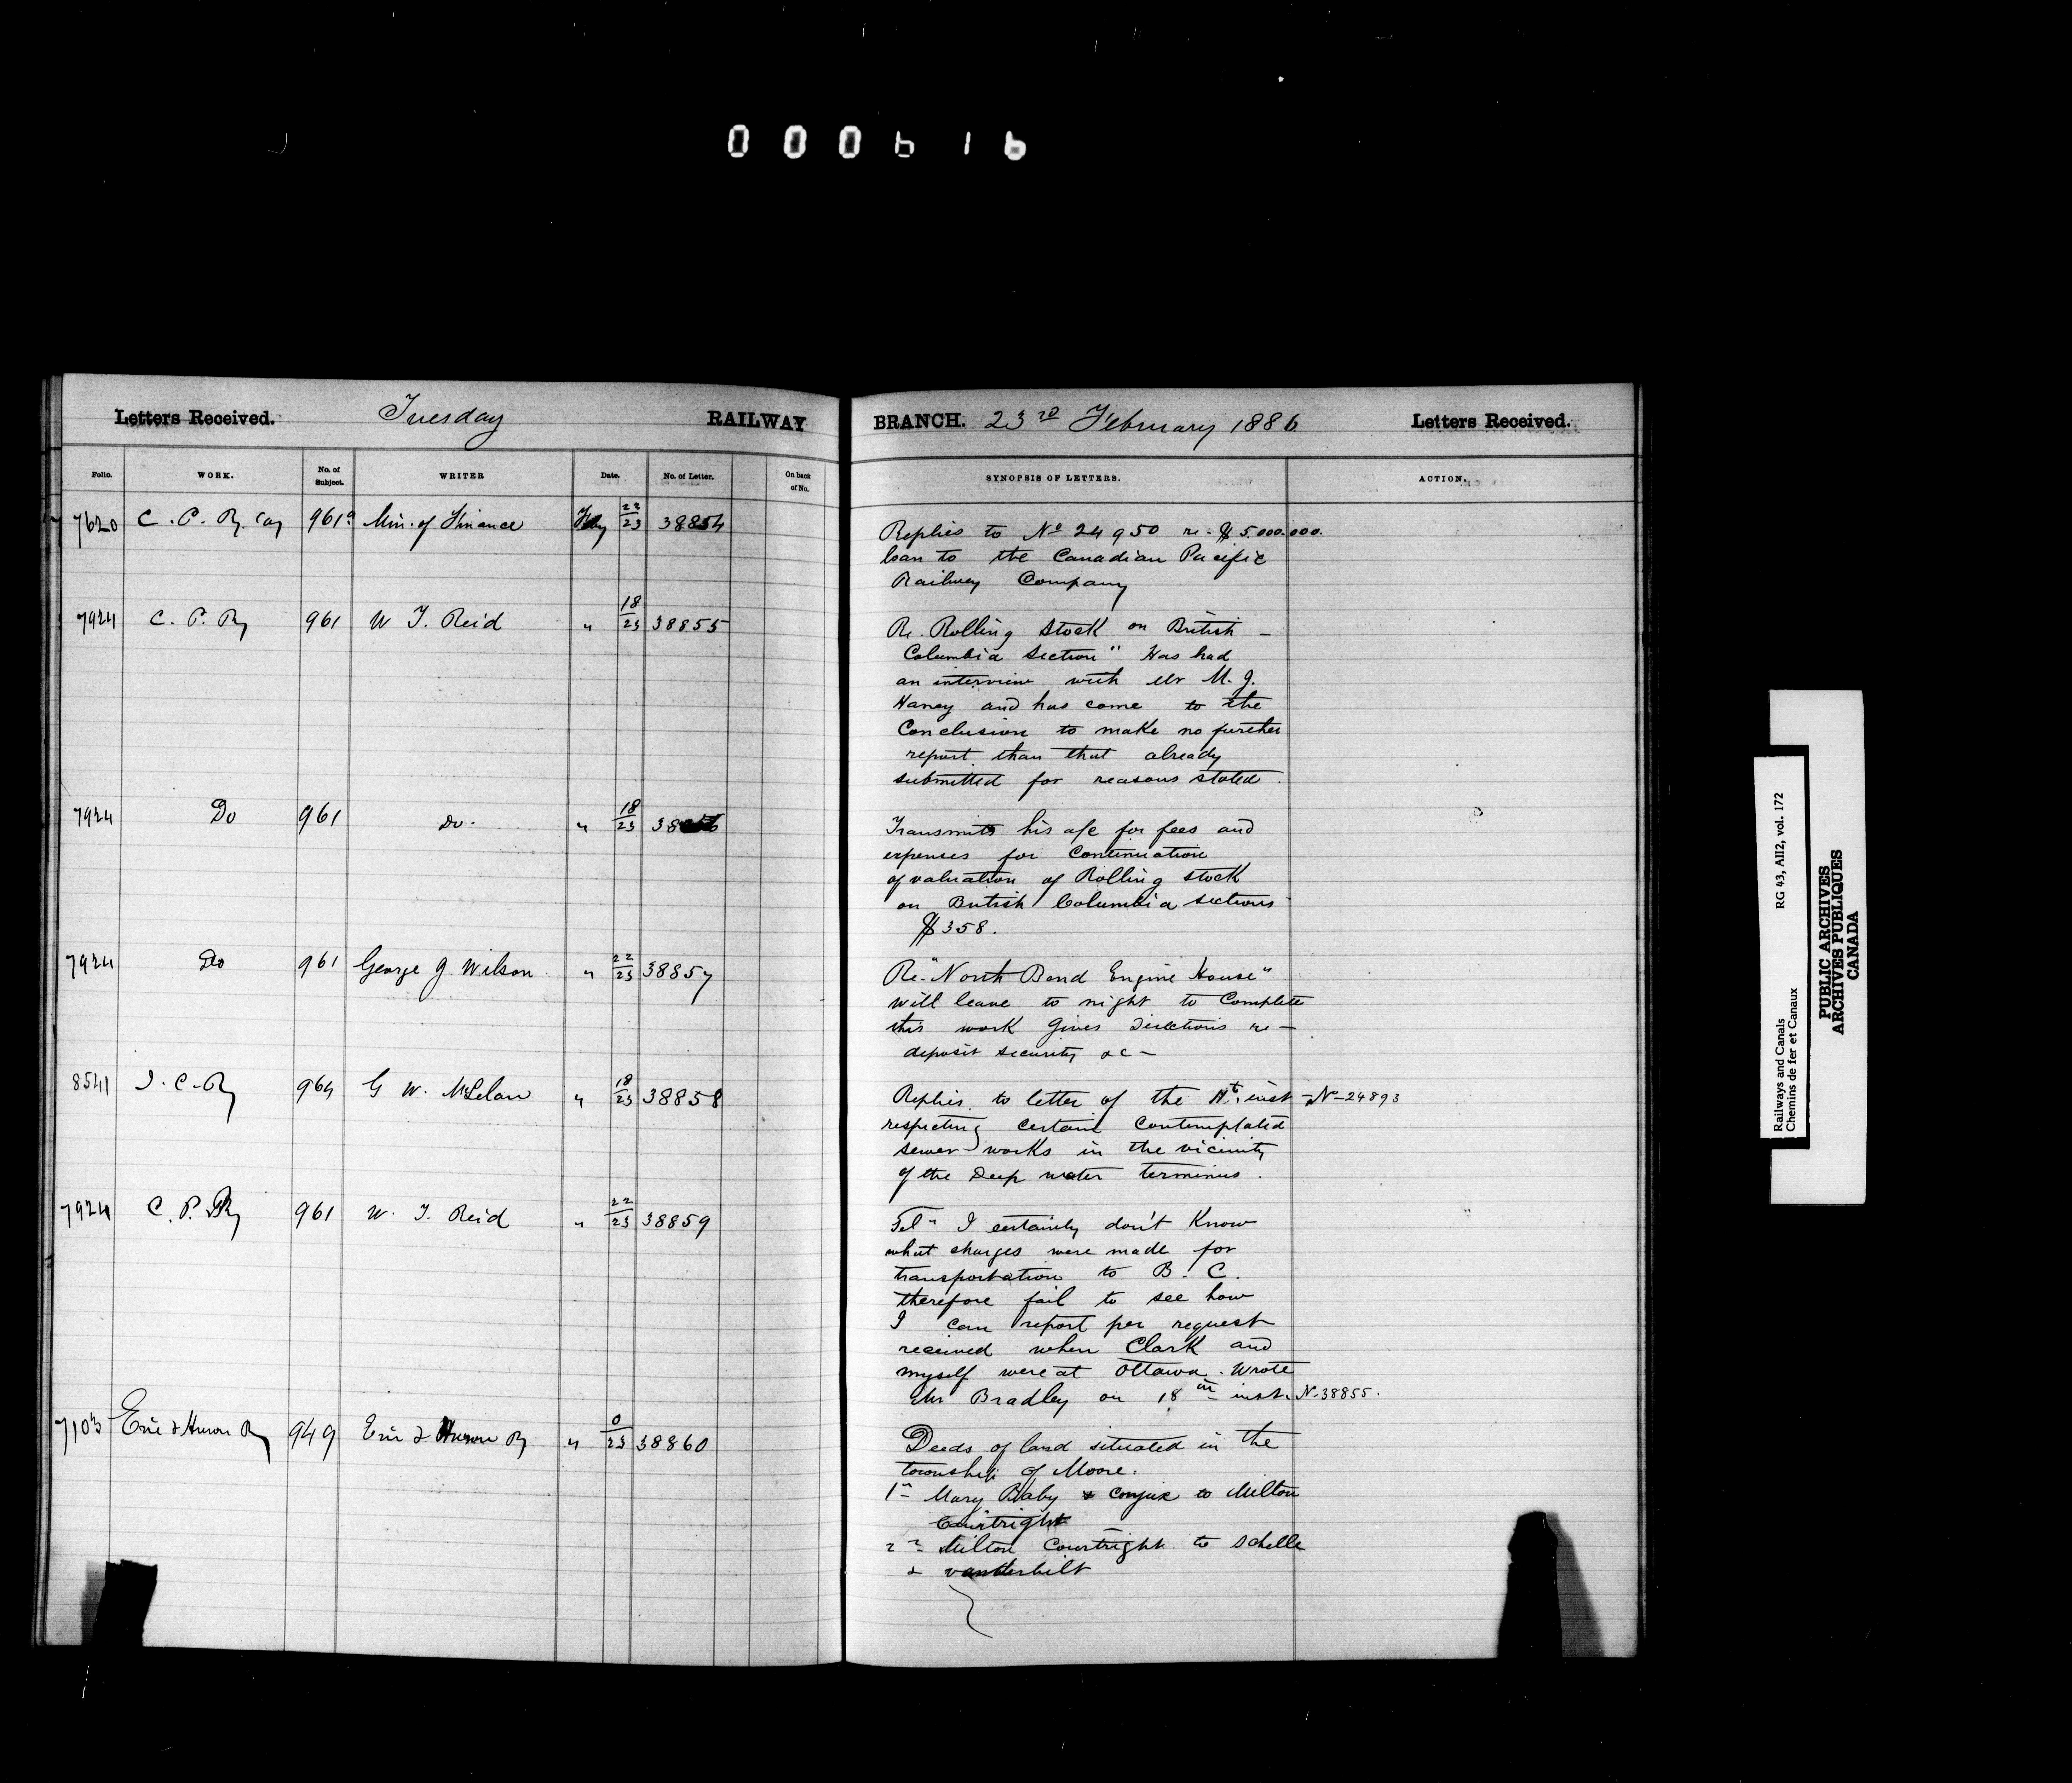 000616
Letters Received. Tuesday RAILWAY BRANCH. 23rd February 1886 Letters Received.
Folio. WORK. No. of Subject. WRITER Date. No. of Letter. On back of No. SYNOPSIS OF LETTERS. ACTION.
7620 C. P. Ry. Coy 961a Min. of Finance Fby 22/23 38854
Replies to No 24950 re. $5.000.000.
loan to the Canadian Pacific
Railway Company
7924 C. P. Ry 961 W T. Reid " 18/23 38855
Re. Rolling Stock on British -
Columbia Section" Has had
an interview with Mr M. J.
Haney and has come to the
Conclusion to make no further
report than that already
submitted for reasons stated.
7924 Do 961 Do. " 18/23 38856
Transmits his a/c for fees and
expenses for Continuation
of valuation of Rolling stock
on British Columbia sections
$358.
7924 Do 961 George J Wilson " 22/23 38857
Re. "North Bend Engine House"
will leave to night to Complete
this work gives directions re -
deposit security &c -
8541 I. C. Ry 964 G W. McLelan " 18/23 38858
Replies to letter of the inst - No 24893
respecting certain Contemplated
sewer works in the vicinity
of the Deep water terminus.
7924 C. P. Ry 961 W. T. Reid " 22/23 38859
Tel " I certainly don't Know
what charges were made for
transportation to B. C.
therefore fail to see how
I can report per request
received when Clark and
myself were at Ottawa. Wrote
Mr Bradley on 18th inst. No 38855.
7103 Erie & Huron Ry 949 Erie & Huron Ry " 0/23 38860
Deeds of land situated in the
township of Moore.
1st Mary Baby & conjux to Milton
Courtright
2nd Milton Courtright to Schelle
& vanderbilt
Railways and Canals RG 43, AII2, vol. 172
Chemins de fer et Canaux
PUBLIC ARCHIVES
ARCHIVES PUBLIQUES
CANADA